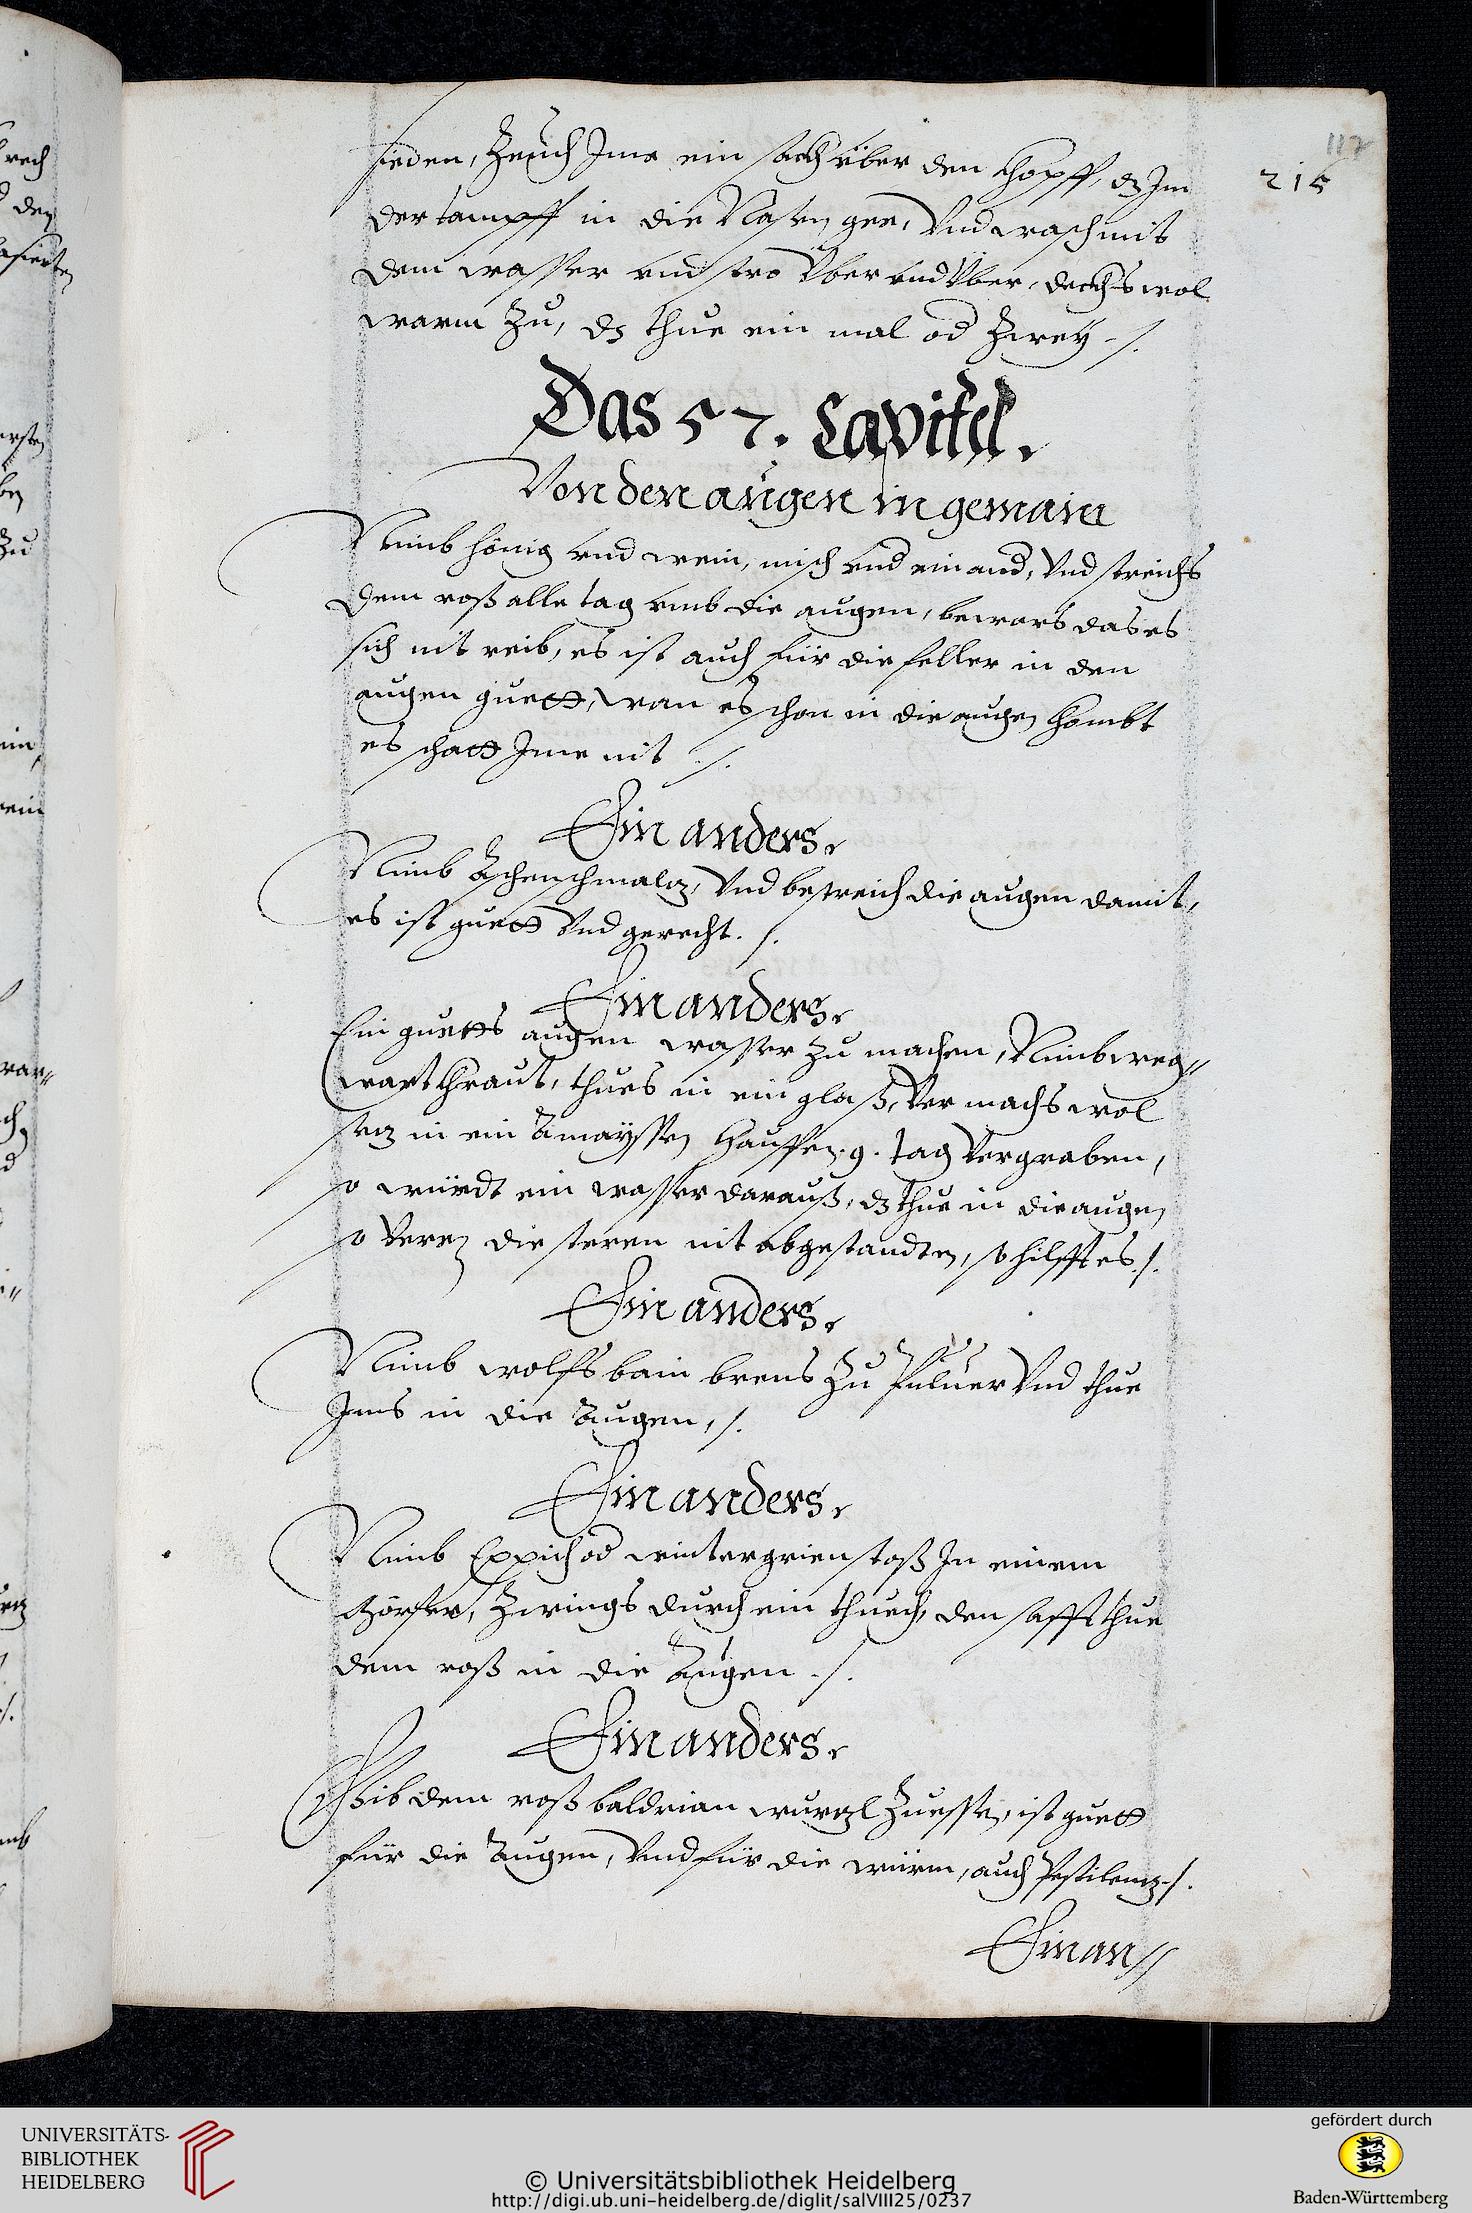 117
215
sieden, Zeuch Jme ein sackh über den khopff, dz Jm
der tampff in die Nasen gee, Vnd wasch mit
dem wasser vnd stro Vber vnd Vber, deckhs wol
warm Zu, dz thue ein mal od Zwey ./.
Das 57. Capitel.
Von den augen in gemain
Nimb hönig vnd wein, misch vnd einand, Vnd streichs
dem roß alle tag vmb die augen, bewars das es
sich nit reib, es ist auch für die feller in den
augen guett, wan es schon in die augen khombt
es schatt Jme nit ./.
Ein anders.
Nimb Aschenschmalz, Vnd bestreich die augen damit,
es ist guett Vnd gerecht ./.
Ein anders.
Ein guetts augen wasser zu machen, Nimb weg=
wart khraut, thues in ein glaß, Vermachs wol
setz in ein Amayssen hauffen .9. tag Vergraben,
so würdt ein wasser darauß, dz thue in die augen
so Veren die steren nit abgestandten, so hilfft es ./.
Ein anders.
Nimb wolfs bain brens Zu Puluer Vnd thue
Jms in die Augen, ./.
Ein anders.
Nimb Eppich od wintergrien stoß Jn einem
Mörser, Zwings durch ein thuech, den safft thue
dem roß in die Augen ./.
Ein anders.
Gib dem roß baldrian wurzl Zu essen, ist guett
für die Augen, Vnd für die würm, auch Pestilenz ./.
Ein an//
UNIVERSITÄTS-
BIBLIOTHEK
HEIDELBERG
© Universitätsbibliothek Heidelberg
http://digi.ub.uni-heidelberg.de/diglit/salVIII25/0237
gefördert durch
Baden-Württemberg